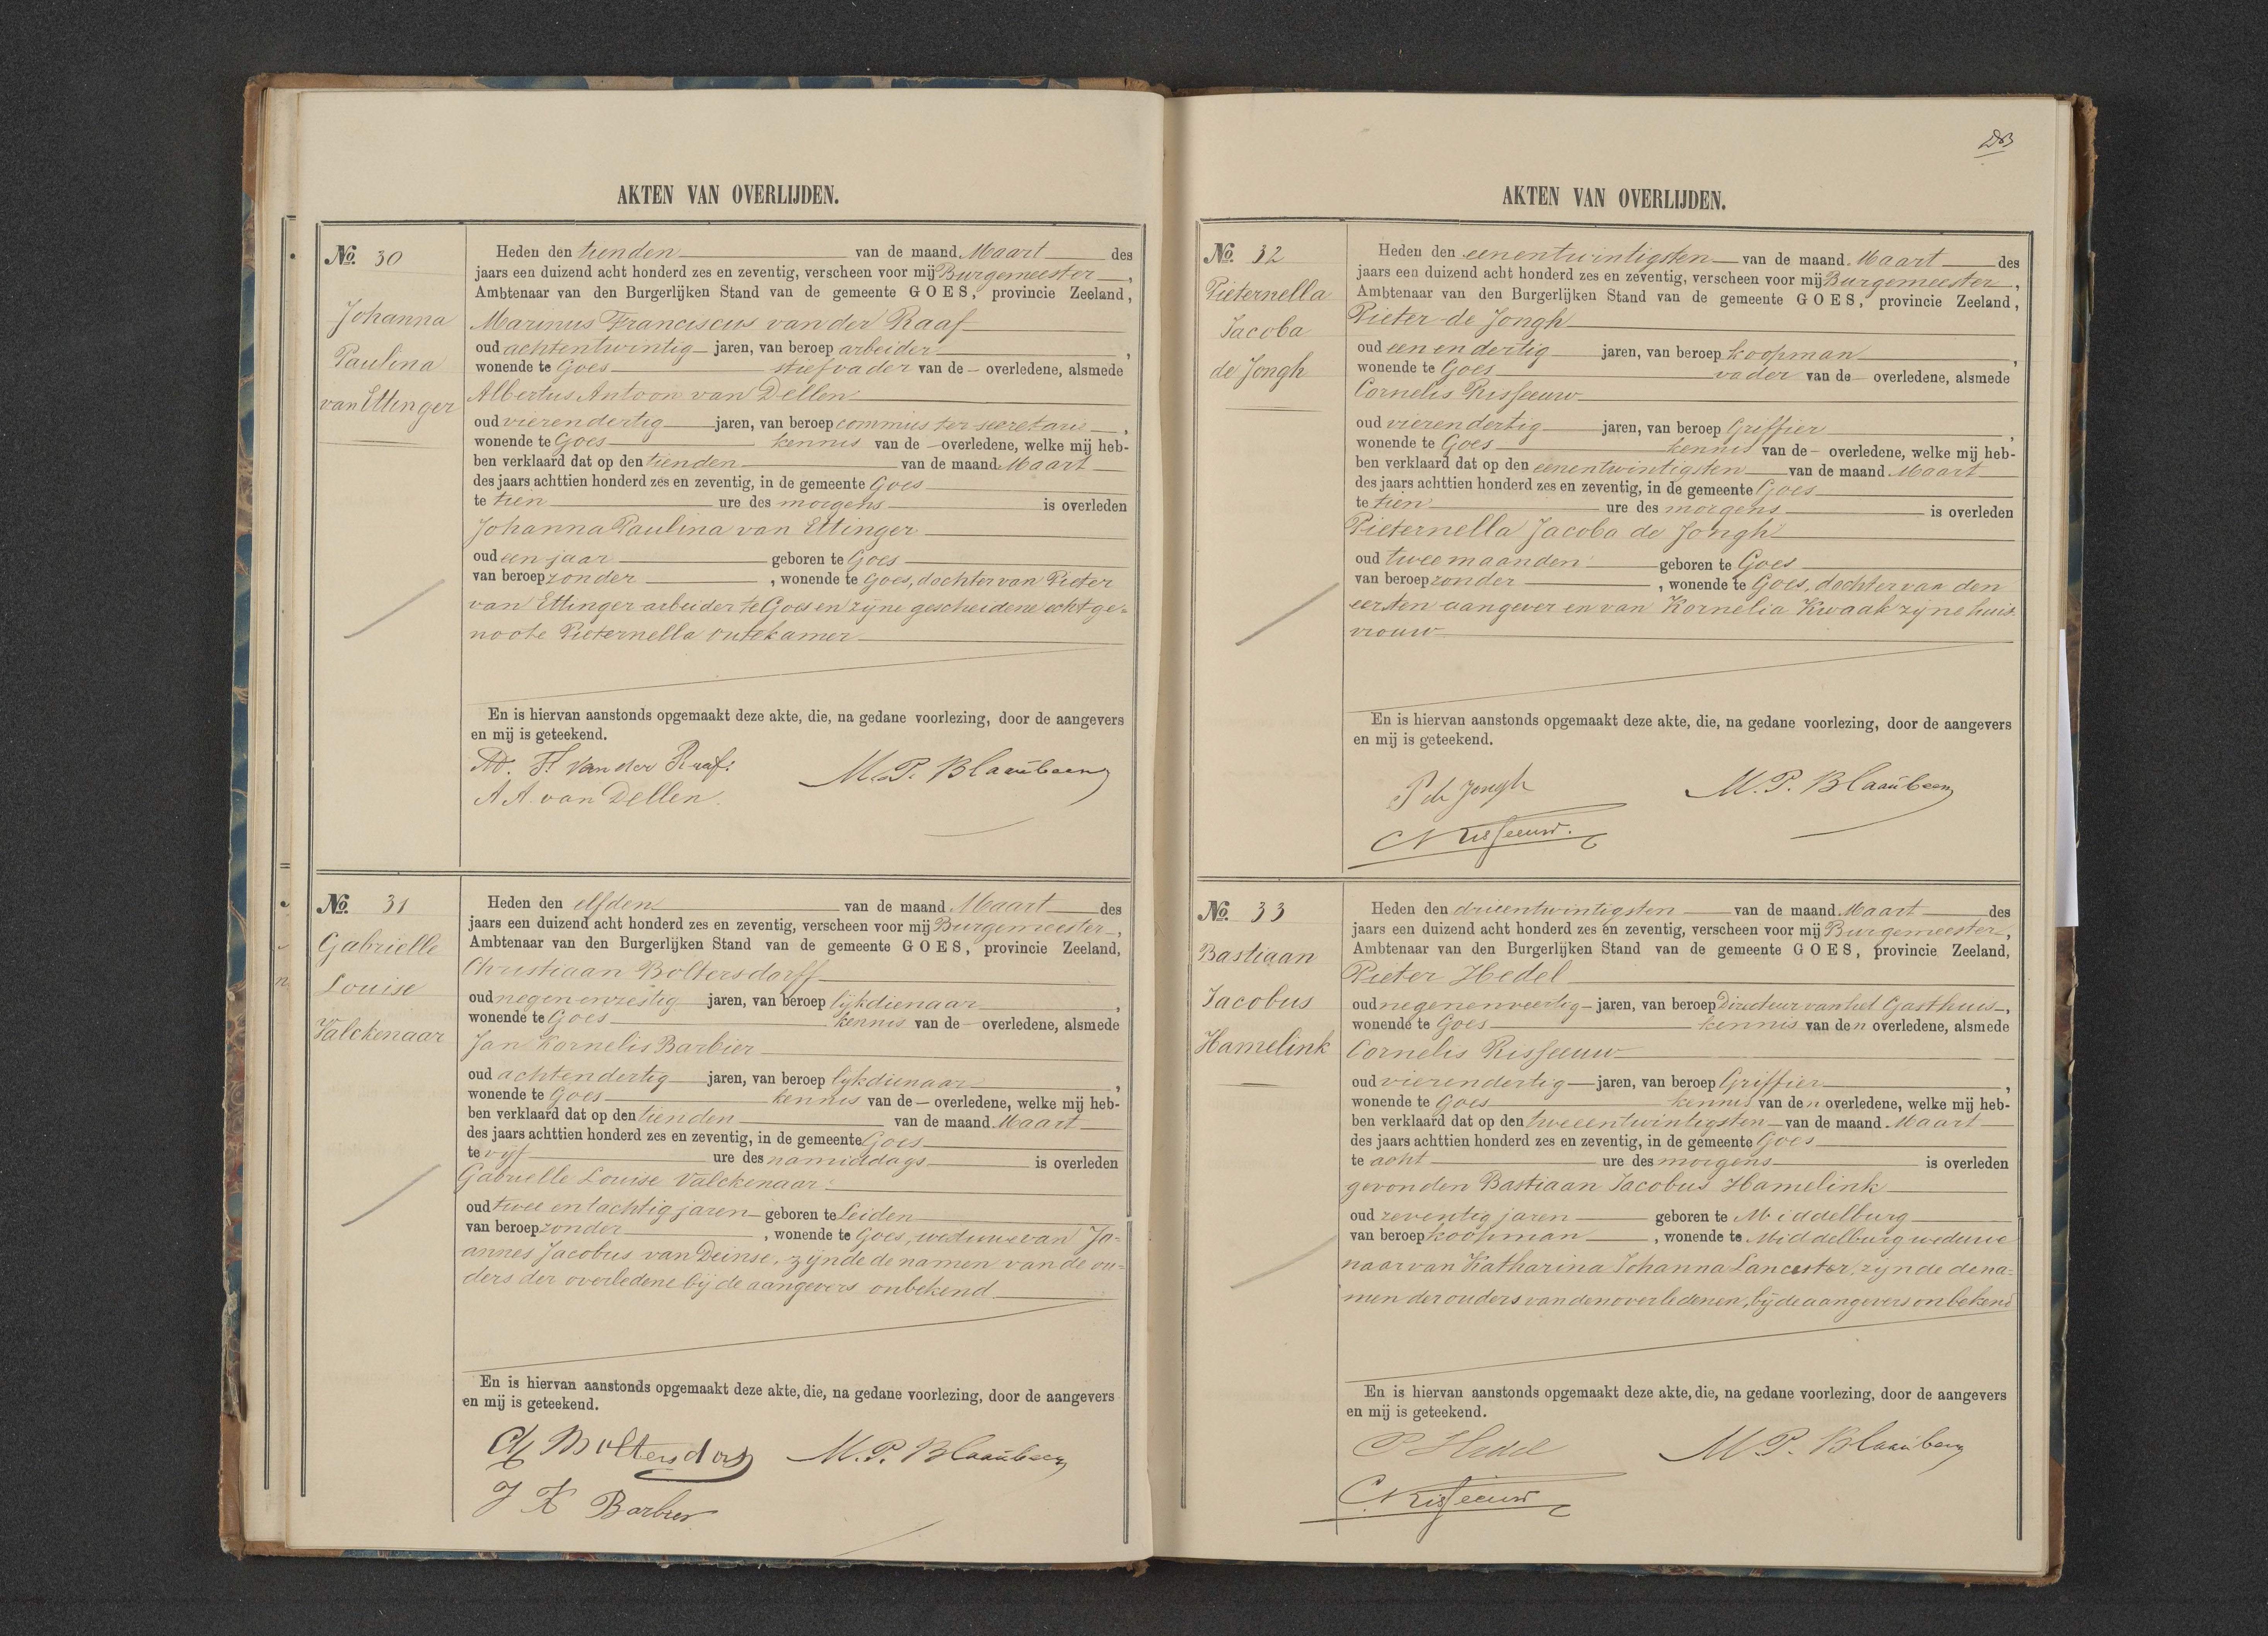 AKTEN VAN OVERLIJDEN.
No. 30
Johanna
Paulina
van Ettinger
Heden den tienden van de maand Maart des
jaars een duizend acht honderd zes en zeventig, verscheen voor mij Burgemeester,
Ambtenaar van den Burgerlijken Stand van de gemeente GOES, provincie Zeeland,
Marinus Franciscus van der Raaf
oud achtentwintig jaren, van beroep arbeider,
wonende te Goes stiefvader van de overledene, alsmede
Albertus Antoon van Dellen
oud vierendertig jaren, van beroep commies ter secretarie,
wonende te Goes kennis van de overledene, welke mij heb-
ben verklaard dat op den tienden van de maand Maart
des jaars achttien honderd zes en zeventig, in de gemeente Goes
te tien ure des morgens is overleden
Johanna Paulina van Ettinger
oud een jaar geboren te Goes
van beroep zonder, wonende te Goes, dochter van Pieter
van Ettinger arbeider te Goes en zijne gescheidene echtge-
noote Pieternella
En is hiervan aanstonds opgemaakt deze akte, die, na gedane voorlezing, door de aangevers
en mij is geteekend.
M. F. van der Raaf.
M. P. Blaaubeen
A A. van Dellen.
No. 31
Gabrielle
Louise
Valckenaar
Heden den elfden van de maand Maart des
jaars een duizend acht honderd zes en zeventig, verscheen voor mij Burgemeester,
Ambtenaar van den Burgerlijken Stand van de gemeente GOES, provincie Zeeland,
Christiaan Boltersdorff
oud negenenzestig jaren, van beroep lijkdienaar,
wonende te Goes kennis van de overledene, alsmede
Jan Kornelis Barbier
oud achtendertig jaren, van beroep lijkdienaar,
wonende te Goes kennis van de overledene, welke mij heb-
ben verklaard dat op den tienden van de maand Maart
des jaars achttien honderd zes en zeventig, in de gemeente Goes
te vijf ure des namiddags is overleden
Gabrielle Louise Valckenaar
oud twee en tachtig jaren geboren te Leiden
van beroep zonder, wonende te Goes, weduwe van Jo-
annes Jacobus van Deinse, zijnde de namen van de ou-
ders der overledene bij de aangevers onbekend
En is hiervan aanstonds opgemaakt deze akte, die, na gedane voorlezing, door de aangevers
en mij is geteekend.
Ch Boltersdorff M. P. Blaaubeen
J K Barbier
AKTEN VAN OVERLIJDEN.
No. 32
Pieternella
Jacoba
de Jongh
Heden den eenentwintigsten van de maand Maart des
jaars een duizend acht honderd zes en zeventig, verscheen voor mij Burgemeester,
Ambtenaar van den Burgerlijken Stand van de gemeente GOES, provincie Zeeland,
Pieter de Jongh
oud een en dertig jaren, van beroep koopman,
wonende te Goes vader van de overledene, alsmede
Cornelis Risseeuw
oud vierendertig jaren, van beroep Griffier,
wonende te Goes kennis van de overledene, welke mij heb-
ben verklaard dat op den eenentwintigsten van de maand Maart
des jaars achttien honderd zes en zeventig, in de gemeente Goes
te tien ure des morgens is overleden
Pieternella Jacoba de Jongh
oud twee maanden geboren te Goes
van beroep zonder, wonende te Goes, dochter van den
eersten aangever en van Kornelia Kwaak zijne huis-
vrouw
En is hiervan aanstonds opgemaakt deze akte, die, na gedane voorlezing, door de aangevers
en mij is geteekend.
P de Jongh
M. P. Blaaubeen
C Risseeuw.
No. 33
Bastiaan
Jacobus
Hamelink
Heden den drieentwintigsten van de maand Maart des
jaars een duizend acht honderd zes en zeventig, verscheen voor mij Burgemeester,
Ambtenaar van den Burgerlijken Stand van de gemeente GOES, provincie Zeeland,
Pieter Hedel
oud negenenveertig jaren, van beroep Directeur van het Gasthuis,
wonende te Goes kennis van den overledene, alsmede
Cornelis Risseeuw
oud vierendertig jaren, van beroep Griffier,
wonende te Goes kennis van den overledene, welke mij heb-
ben verklaard dat op den tweeentwintigsten van de maand Maart
des jaars achttien honderd zes en zeventig, in de gemeente Goes
te acht ure des morgens is overleden
gevonden Bastiaan Jacobus Hamelink
oud zeventig jaren geboren te Middelburg
van beroep koopman, wonende te Middelburg weduwe
naar van Katharina Johanna Lancaster, zijnde de na-
men der ouders van den overledenen, bij de aangevers onbekend
En is hiervan aanstonds opgemaakt deze akte, die, na gedane voorlezing, door de aangevers
en mij is geteekend.
P Hedel
M P. Blaaubeen
C. Risseeuw